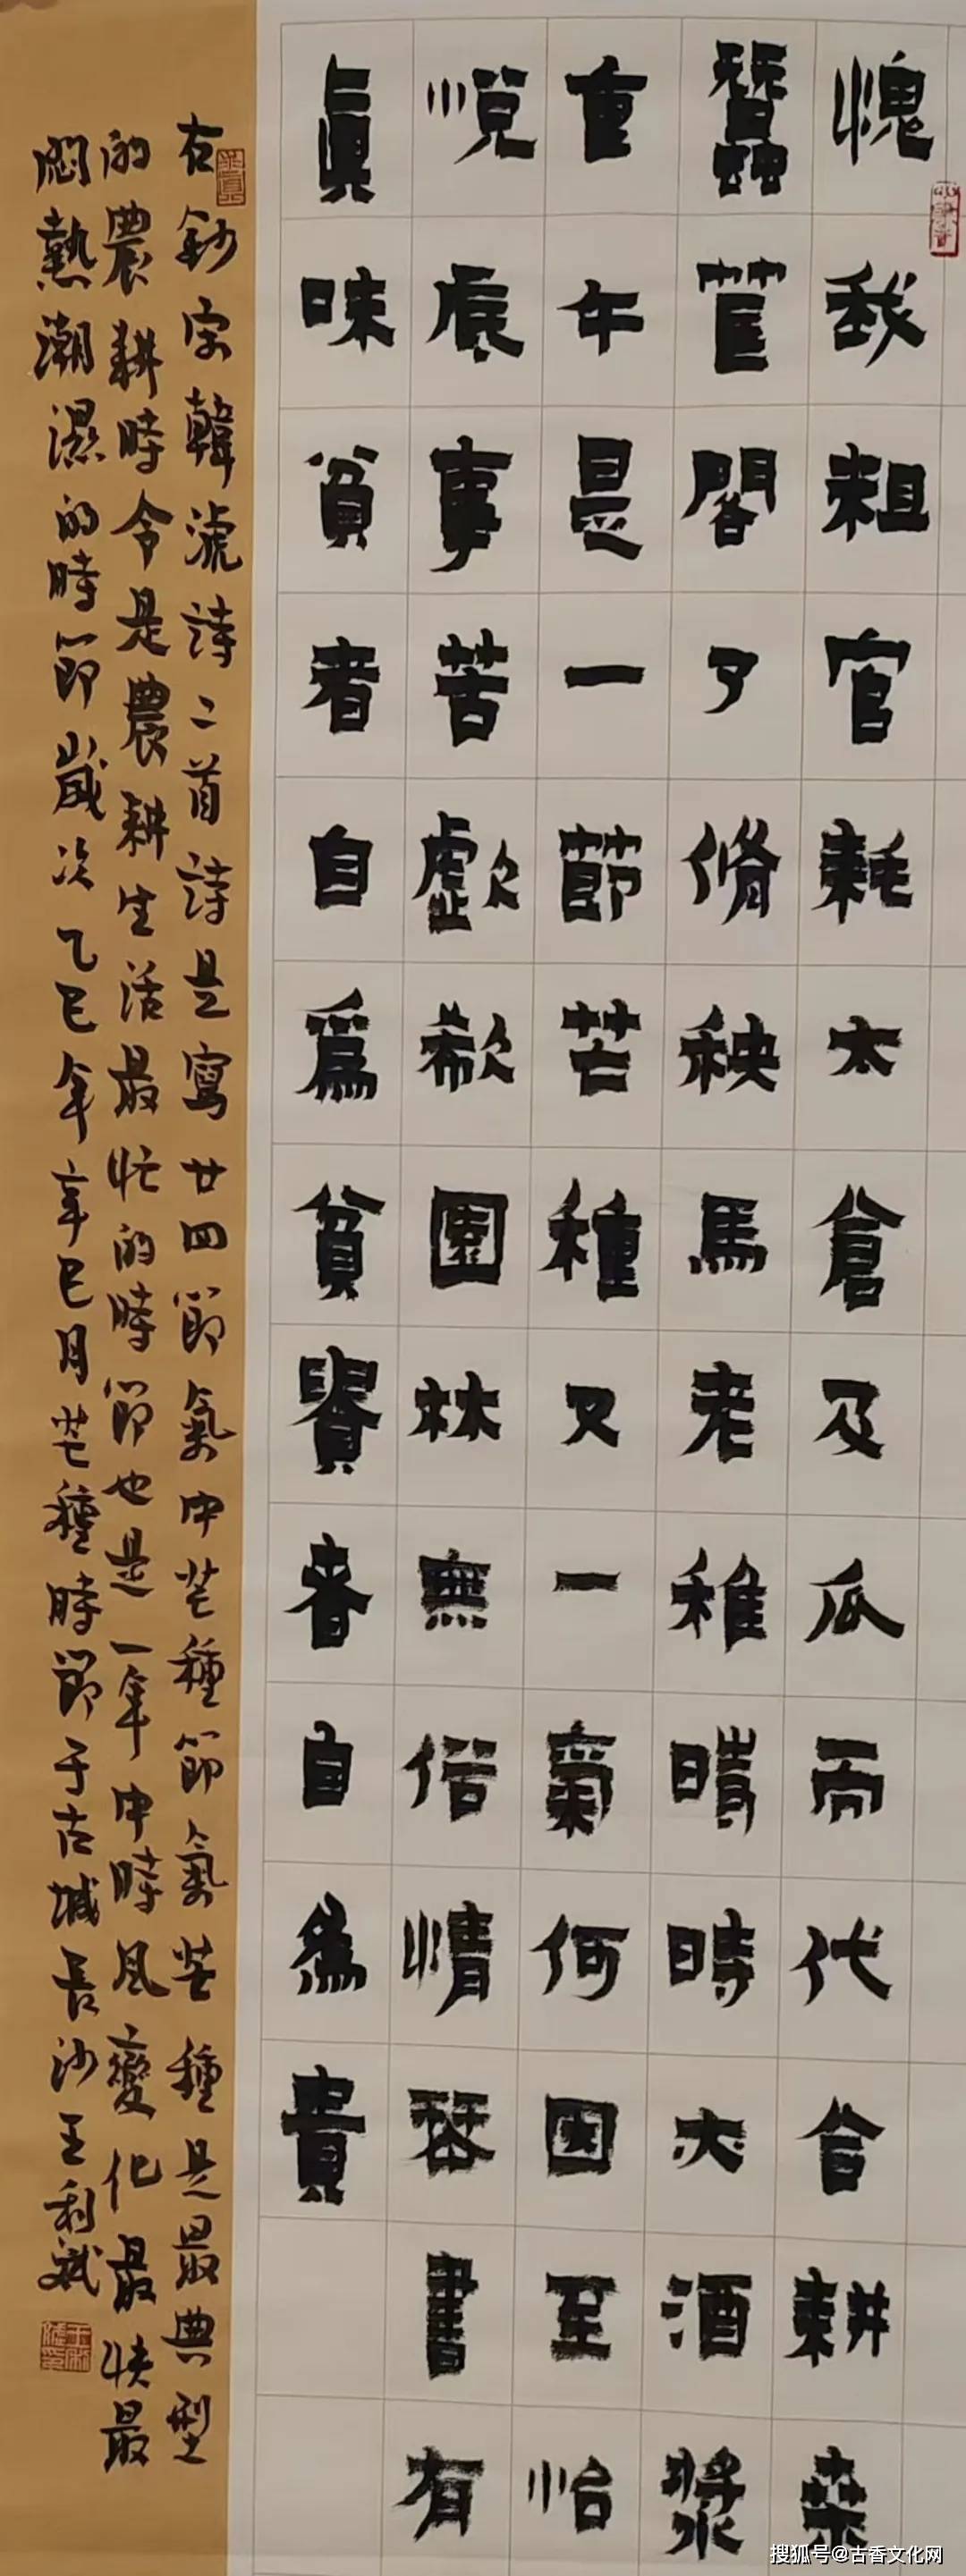 愧我粗官耗太倉及瓜而代合耕桒
蠶筐閣了脩秧馬老稚晴時大酒漿
重午是一節芒種又一氣何因至怡
悅辰事苦歔欷園林無俗情琴書有
眞味貧者自爲貧賢者自爲貴
右鈔宋韓淲詩二首詩是寫廿四節氣中芒種節氣芒種是最典型
的農耕時令是農耕生活最忙的時節也是一年中時風變化最快最
悶熱潮濕的時節歲次乙巳年辛巳月芒種時節于古城長沙王利斌
搜狐号@古香文化网